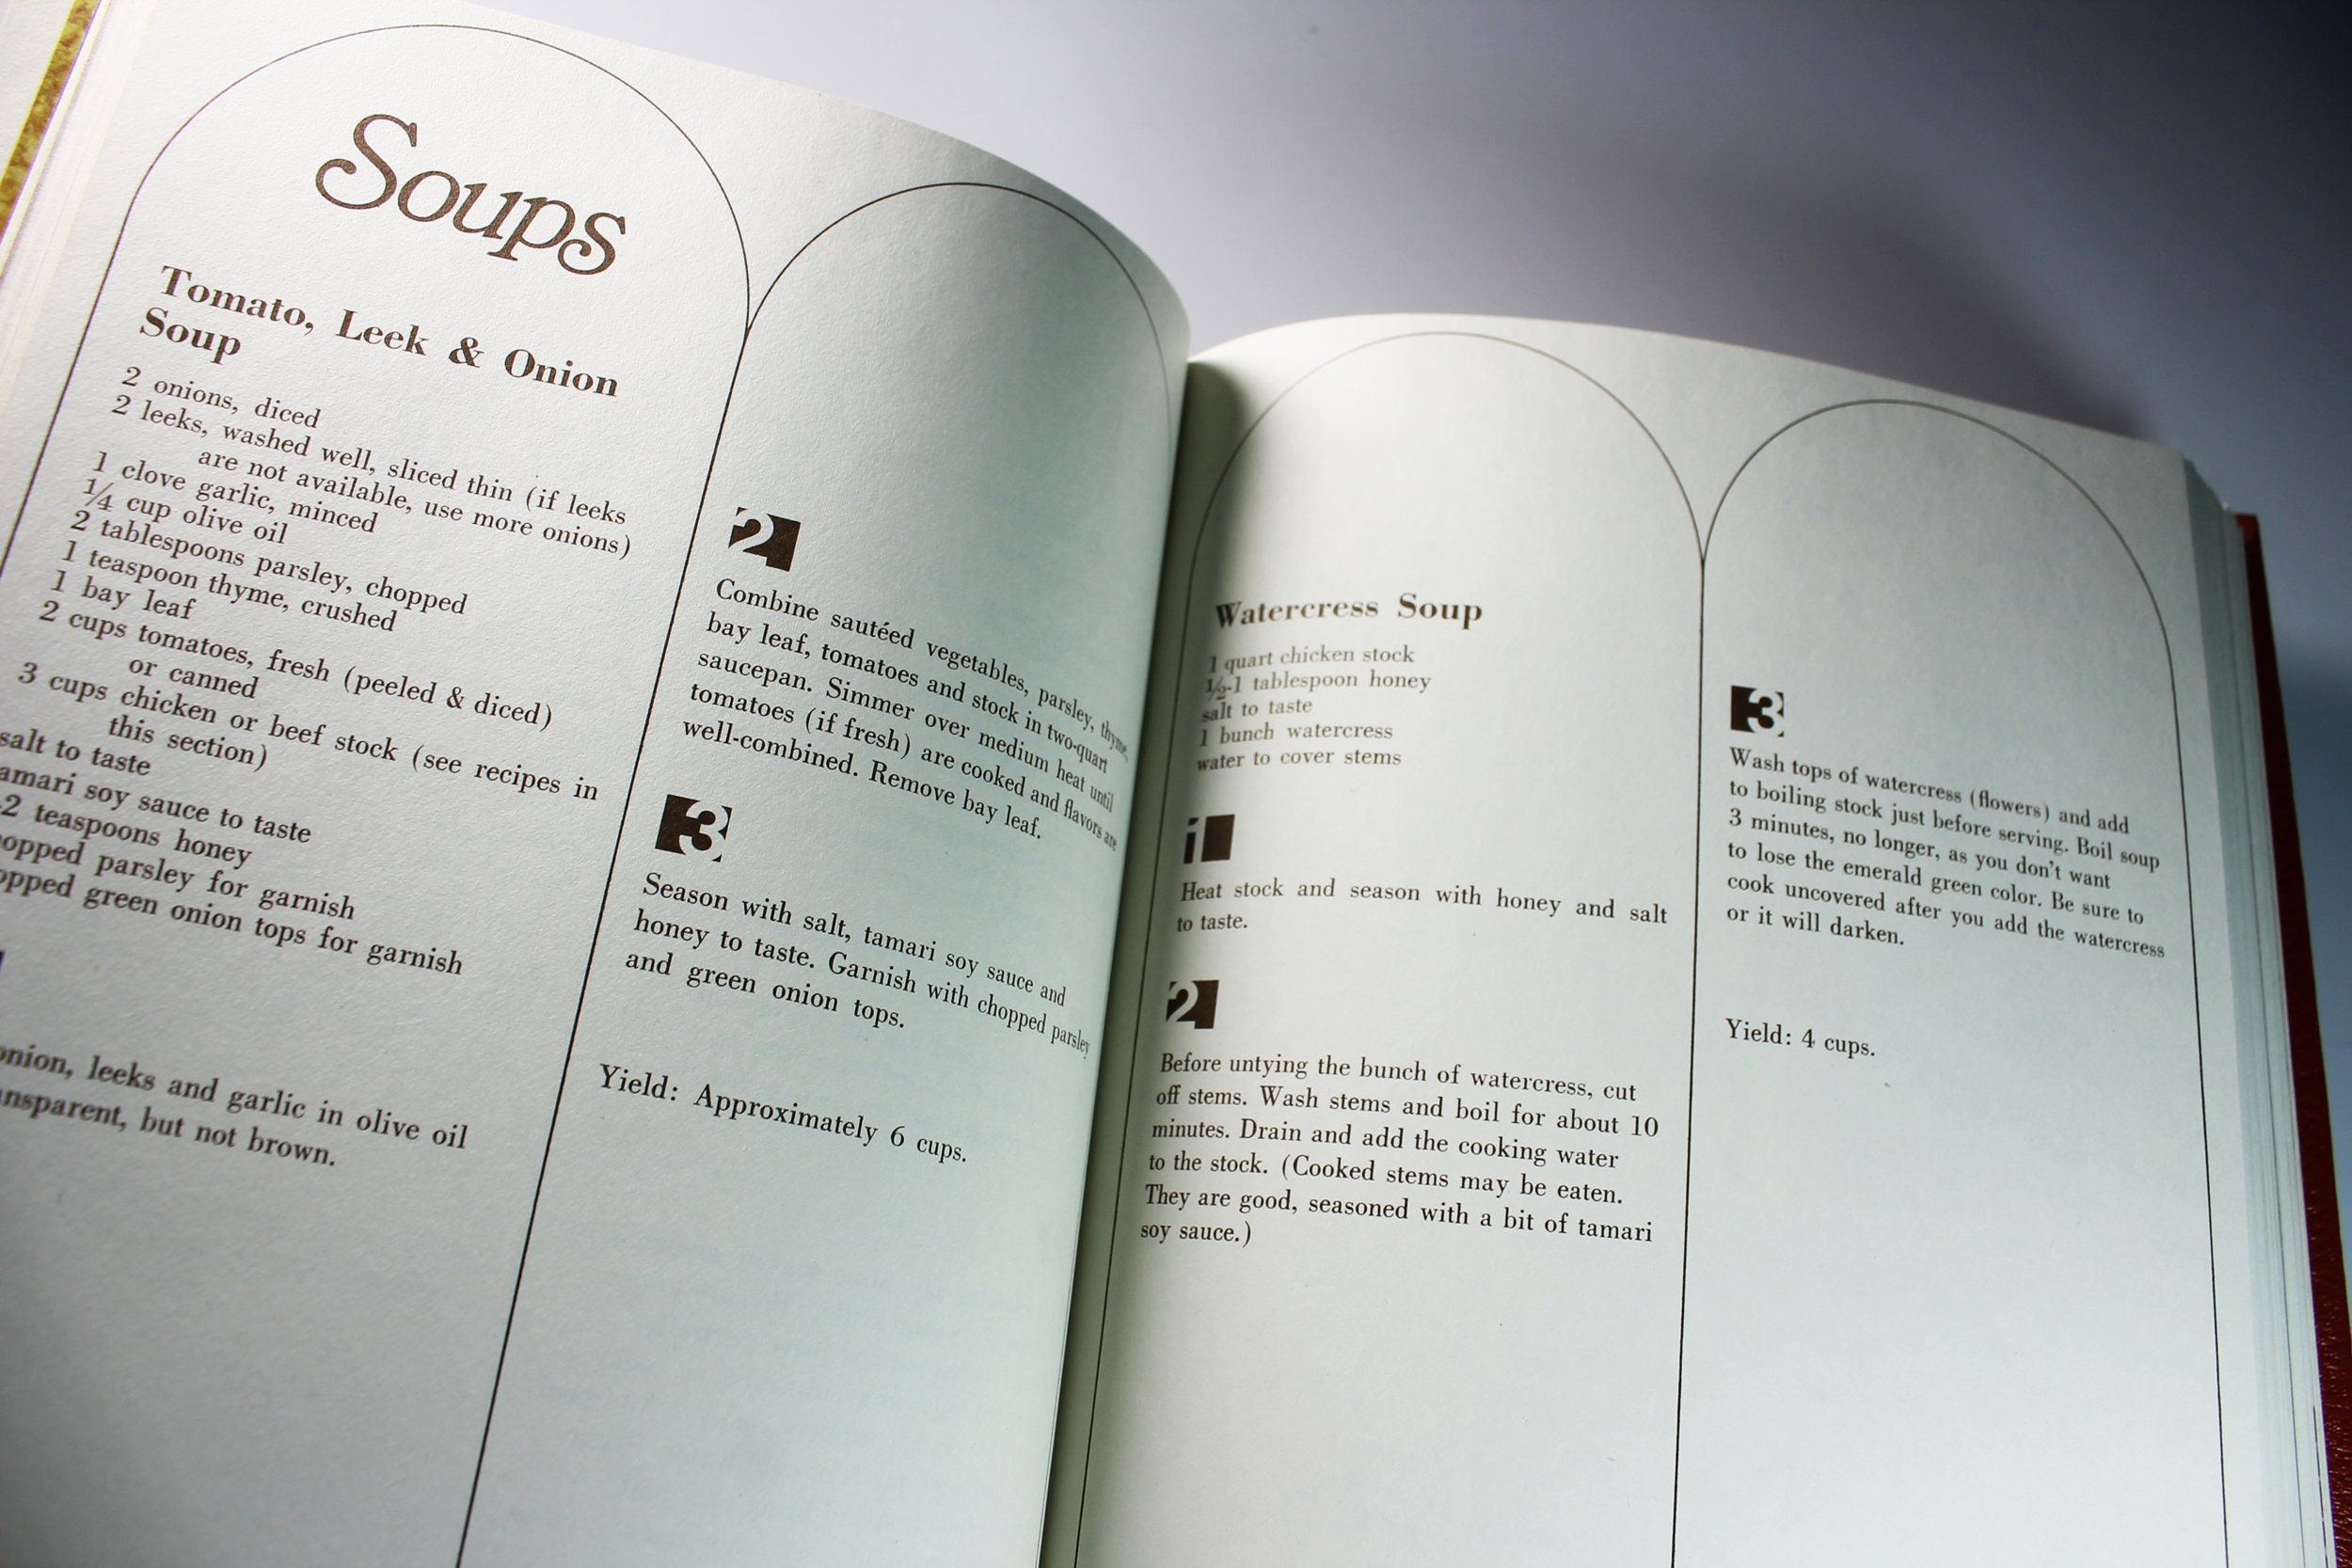 Soups
Tomato, Leek & Onion
Soup
2 onions, diced
2 leeks, washed well, sliced thin (if leeks
are not available, use more onions)
1 clove garlic, minced
1/4 cup olive oil
2 tablespoons parsley, chopped
1 teaspoon thyme, crushed
1 bay leaf
2 cups tomatoes, fresh (peeled & diced)
or canned
3 cups chicken or beef stock (see recipes in
this section)
salt to taste
amari soy sauce to taste
-2 teaspoons honey
opped parsley for garnish
opped green onion tops for garnish
onion, leeks and garlic in olive oil
ansparent, but not brown.
2
Combine sautéed vegetables, parsley, thyme,
bay leaf, tomatoes and stock in two-quart
saucepan. Simmer over medium heat until
tomatoes (if fresh) are cooked and flavors are
well-combined. Remove bay leaf.
3
Season with salt, tamari soy sauce and
honey to taste. Garnish with chopped parsley
and green onion tops.
Yield: Approximately 6 cups.
Watercress Soup
1 quart chicken stock
1/2-1 tablespoon honey
salt to taste
1 bunch watercress
water to cover stems
1
Heat stock and season with honey and salt
to taste.
2
Before untying the bunch of watercress, cut
off stems. Wash stems and boil for about 10
minutes. Drain and add the cooking water
to the stock. (Cooked stems may be eaten.
They are good, seasoned with a bit of tamari
soy sauce.)
3
Wash tops of watercress (flowers) and add
to boiling stock just before serving. Boil soup
3 minutes, no longer, as you don't want
to lose the emerald green color. Be sure to
cook uncovered after you add the watercress
or it will darken.
Yield: 4 cups.